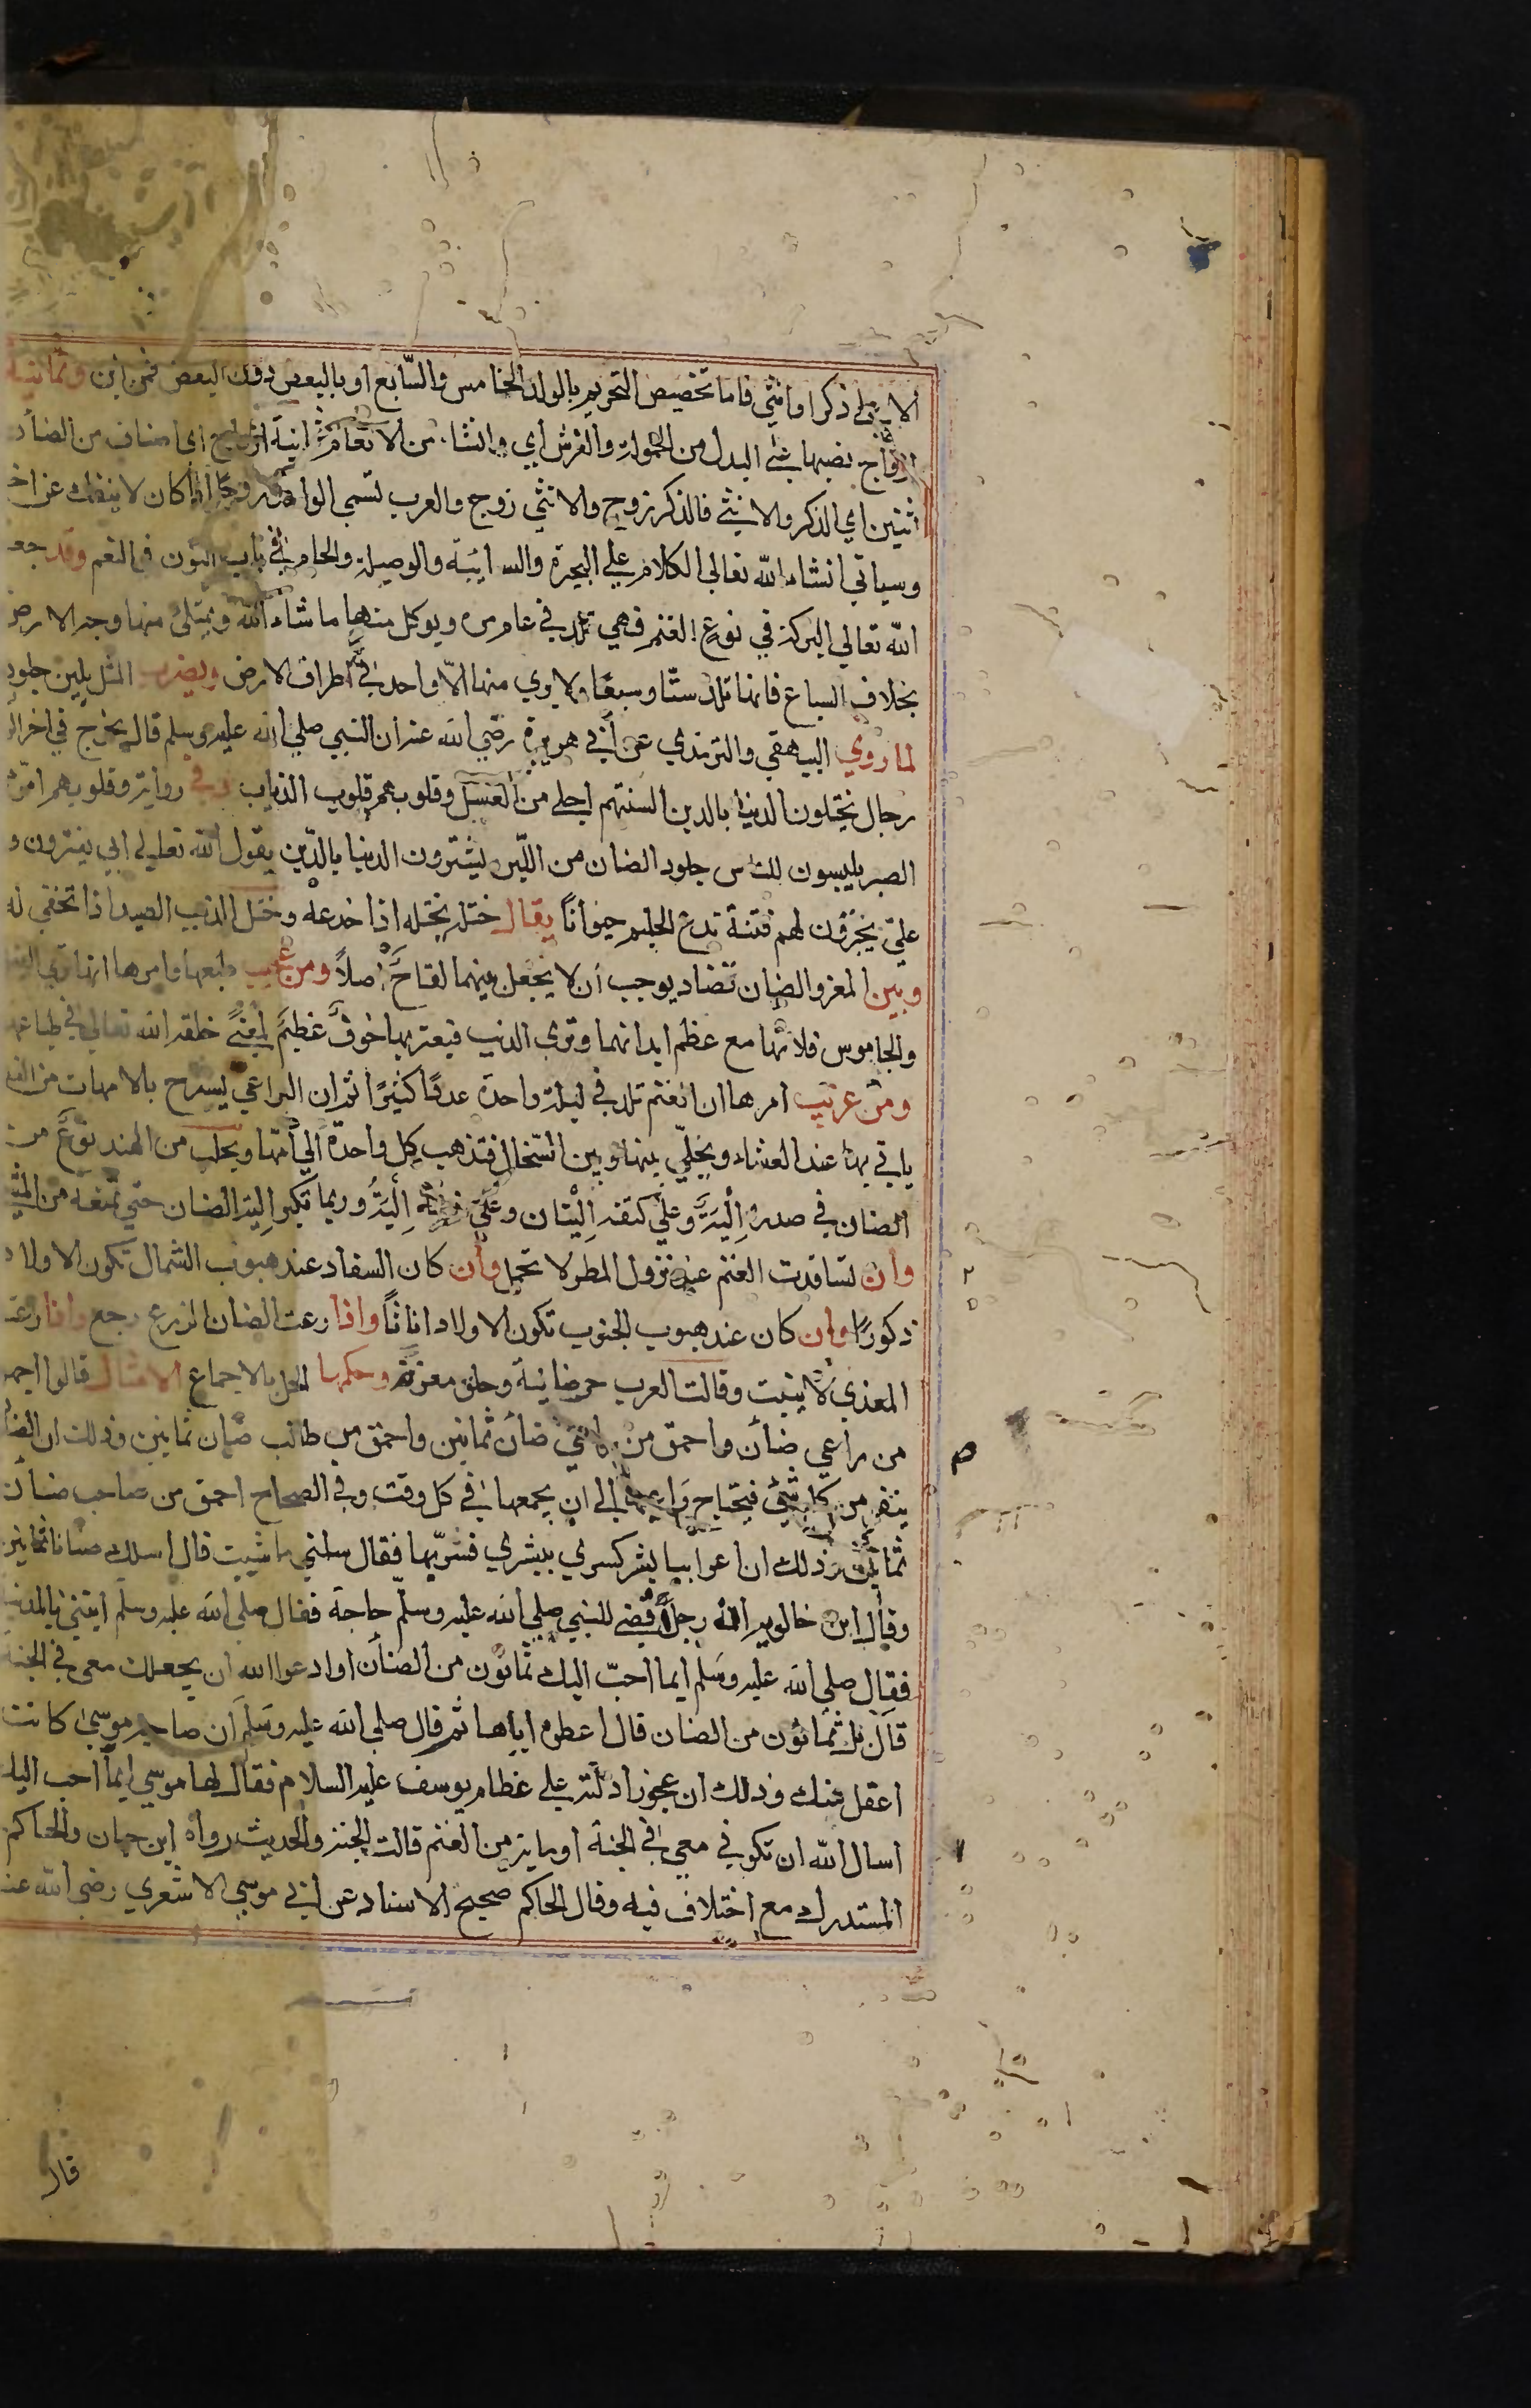 الا على ذكرا وانثي فاما تخصيص التحريم بالولد الخامس والسابع او بالبعض دون البعض فمن اين وثمانية
ازواج نصبها على البدل من الحمولة والفرش اي وانشا من الانعام ثمانية ازواج اي اصناف من الضأن
اثنين اي الذكر والانثي فالذكر زوج والانثي زوج والعرب تسمي الواحد زوجا اذا كان لا ينفك عن اخر
وسياتي انشاء الله تعالي الكلام علي البحيرة والسايبة والوصيلة والحام في باب النون في النعم وقد جعل
الله تعالي البركة في نوع الغنم فهي تلد في عام مرة ويوكل منها ما شاء الله ويمتلئ منها وجه الارض
بخلاف السباع فانها تلد ستا وسبعا ولا يري منها الا واحد في اطراف الارض ويضرب المثل بلين جلود
لما روي البيهقي والترمذي عن أبي هريرة رضي الله عنه ان النبي صلي الله عليه وسلم قال يخرج في اخر
رجال يختلون الدنيا بالدين السنتهم احلي من العسل وقلوبهم قلوب الذياب وفي رواية وقلوبهم امر من
الصبر يلبسون للناس جلود الضان من اللين يشترون الدنيا بالدين يقول الله تعالي ابي يغترون و
علي يجترؤن لهم فتنة تدع الحليم حيرانا يقال ختله يختله اذا خدعه وختل الذيب الصيد اذا تخفي له
وبين المعز والضان تضاد يوجب أن لا يجعل بينهما لقاح اصلا ومن عجيب طبعها وامرها انها تري
والجاموس فلا تهابها مع عظم ابدانهما وتري الذيب فيعتريها خوف عظيم لمعني خلقه الله تعالي في طباعها
ومن غريب امرها ان الغنم تلد في ليلة واحدة عددا كثيرا ثم ان الراعي يسرح بالامهات من الغد
ياتي بها عند العشاء ويخلي بينها وبين السخال فتذهب كل واحدة الي أمها ويجلب من الهند نوع من
الضان في صدره إلية وعلي كتفه إليتان وعلي إلية وربما تكبر إلية الضان حتي تمنعه من المشي
وان تسافدت الغنم عند نزول المطر لا تحمل وأن كان السفاد عند هبوب الشمال تكون الاولاد
ذكورا وان كان عند هبوب الجنوب تكون الاولاد اناثا واذا رعت الضان الزرع رجع واذا رعته
المعزي لا ينبت وقالت العرب جز ضانية وحلق معزة وحكمها الحل بالاجماع الامثال قالوا اجهل
من راعي ضأن واحمق من راعي ضأن ثمانين واحمق من طالب ضأن ثمانين وذلك ان الضأن
ينفر من كل شيئ فيحتاج راعيها الي ان يجمعها في كل وقت وفي الصحاح احمق من صاحب ضأن
ثمانين وذلك ان اعرابيا بشر كسري ببشري فسر بها فقال سلني ما شيت قال اسلك ضانا ثمانين
وقال ابن خالويه انه رجل قضي للنبي صلي الله عليه وسلم حاجة فقال صلي الله عليه وسلم ايتني بالمدينة
فقال صلي الله عليه وسلم ايما احب اليك ثمانون من الضأن او ادعوا الله ان يجعلك معي في الجنة
قال بل ثمانون من الضان قال اعطوه اياها ثم قال صلي الله عليه وسلم ان صاحبة موسي كانت
اعقل منك وذلك ان عجوزا دلته علي عظام يوسف عليه السلام فقال لها موسي ايما احب اليك
اسال الله ان تكوني معي في الجنة او ماية من الغنم قالت الجنة والحديث رواه ابن حبان والحاكم
المستدرك مع اختلاف فيه وقال الحاكم صحيح الاسناد عن ابي موسي الاشعري رضي الله عنه
قال